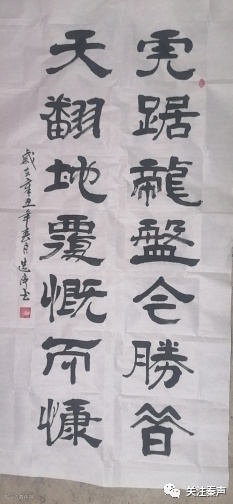 虎踞龍盤今勝昔
天翻地覆慨而慷
歲在辛丑年春月
关注秦声